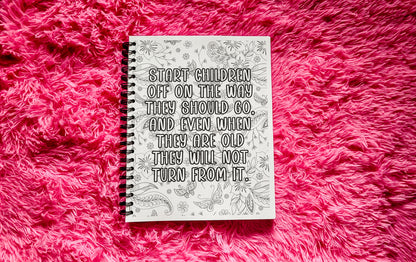 START CHILDREN
OFF ON THE WAY
THEY SHOULD GO,
AND EVEN WHEN
THEY ARE OLD
THEY WILL NOT
TURN FROM IT.